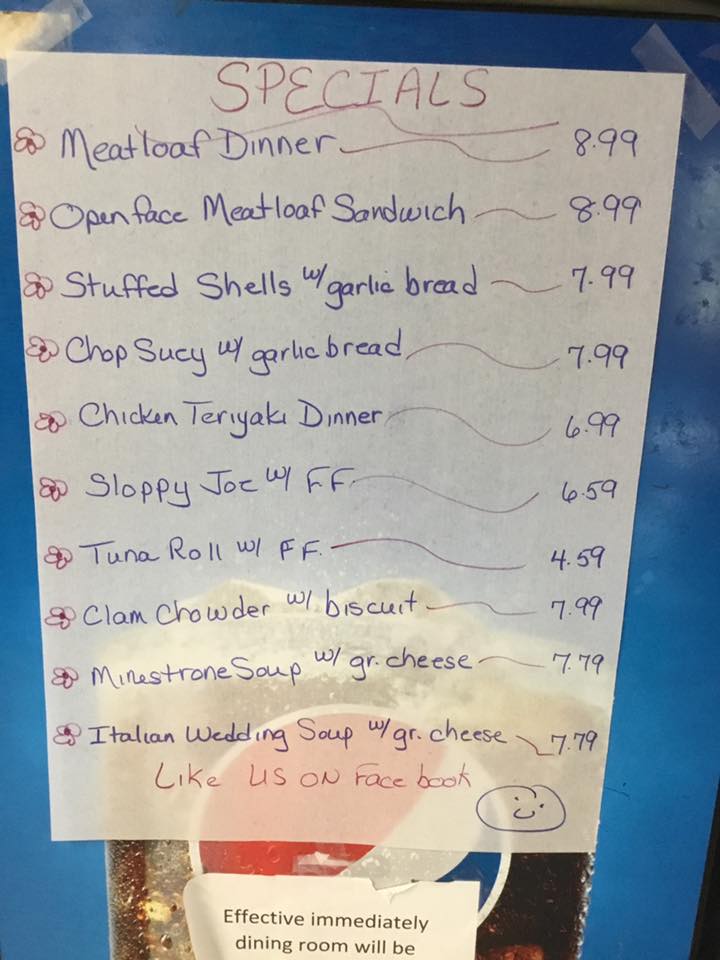 SPECIALS
Meatloaf Dinner 8.99
Open face Meatloaf Sandwich 8.99
Stuffed Shells w/ garlic bread 7.99
Chop Suey w/ garlic bread 7.99
Chicken Teriyaki Dinner 6.99
Sloppy Joe w/ FF 6.59
Tuna Roll w/ FF. 4.59
Clam Chowder w/ biscuit 7.99
Minestrone Soup w/ gr. cheese 7.79
Italian Wedding Soup w/ gr. cheese 7.79
Like us on Face book
Effective immediately
dining room will be